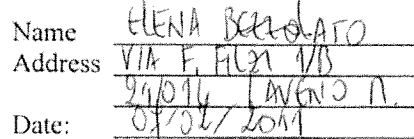 Name ELENA BEZZOLATO
Address VIA F. FILZI 1/B
21014 LAVENO M.
Date: 07/02/2011